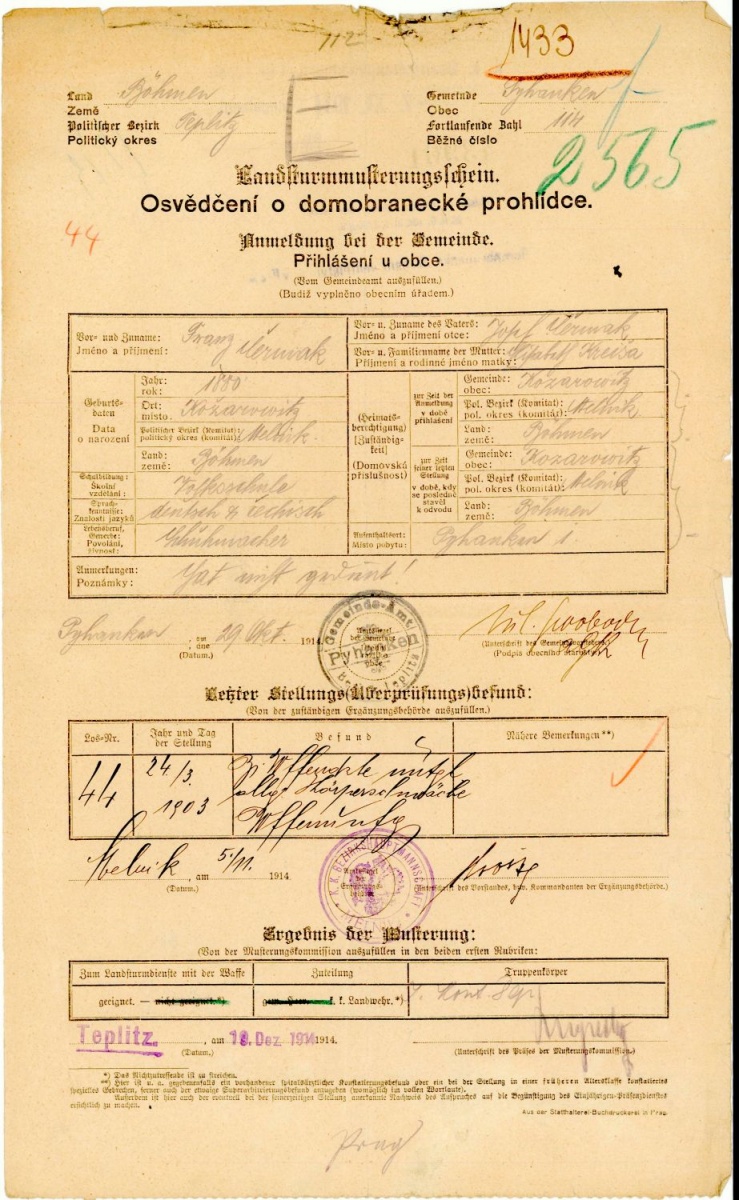 112
1433
Land Böhmen
Země
Politischer Bezirk Teplitz
Politický okres
Gemeinde Pyhanken
Obec
Fortlaufende Zahl 114
Běžné číslo
2565
Landsturmmusterungsschein.
Osvědčení o domobranecké prohlídce.
44
Anmeldung bei der Gemeinde.
Přihlášení u obce.
(Vom Gemeindeamt auszufüllen.)
(Budiž vyplněno obecním úřadem.)
Vor- und Zuname: Franz Čermak
Jméno a příjmení:
Vor- u. Zuname des Vaters: Josef Čermak
Jméno a příjmení otce:
Vor- u. Familienname der Mutter: Kreisa
Příjmení a rodinné jméno matky:
Geburtsdaten
Data o narození
Jahr: 1880
rok:
Ort: Kozarowitz
místo:
Politischer Bezirk (Komitat): Melnik.
politický okres (komitát):
Land: Böhmen
země:
(Heimatsberechtigung)
[Zuständigkeit]
(Domovská příslušnost)
zur Zeit der Anmeldung
v době přihlášení
Gemeinde: Kozarowitz
obec:
Pol. Bezirk (Komitat): Melnik
pol. okres (komitát):
Land: Böhmen
země:
zur Zeit seiner letzten Stellung
v době, kdy se posledně stavěl k odvodu
Gemeinde: Kozarowitz
obec:
Pol. Bezirk (Komitat): Melnik
pol. okres (komitát):
Land: Böhmen
země:
Schulbildung: Volksschule
Školní vzdělání:
Sprachkenntnisse: deutsch & čechisch
Znalosti jazyků
Lebensberuf, Gewerbe: Schuhmacher
Povolání, živnost:
Aufenthaltsort: Pyhanken
Místo pobytu:
Anmerkungen: Hat nicht gedient!
Poznámky:
Pyhanken, am 29 Okt. 1914
dne
(Datum.)
Gemeinde-Amt
Amtssiegel der Gemeinde
Pyhanken
Bez. Teplitz
(Unterschrift des Gemeindevorstehers)
(Podpis obecního starosty)
Letzter Stellungs(Überprüfungs)befund:
(Von der zuständigen Ergänzungsbehörde auszufüllen.)
Los-Nr.
Jahr und Tag der Stellung
Befund
Nähere Bemerkungen**)
44
24/3.
1903
Körperschwäche
Melnik, am 5./11. 1914.
(Datum.)
K. K. BEZIRKSHAUPTMANNSCHAFT
(Unterschrift des Vorstandes, bzw. Kommandanten der Ergänzungsbehörde.)
Ergebnis der Musterung:
(Von der Musterungskommission auszufüllen in den beiden ersten Rubriken:
Zum Landsturmdienste mit der Waffe
Zuteilung
Truppenkörper
geeignet. — nicht geeignet.*)
gem. Heer. — k. k. Landwehr.*)
Teplitz., am 19. Dez. 1914 1914.
(Datum.)
(Unterschrift des Präses der Musterungskommission.)
*) Das Nichtzutreffende ist zu streichen.
**) Hier ist u. a. gegebenenfalls ein vorhandener spitalsärztlicher Konstatierungsbefund oder ein bei der Stellung in einer früheren Altersklasse konstatiertes
spezielles Gebrechen, ferner auch der etwaige Superarbitrierungsbefund anzugeben (womöglich im vollen Wortlaute).
Außerdem ist hier auch der eventuell bei der seinerzeitigen Stellung anerkannte Nachweis des Anspruches auf die Begünstigung des Einjährigen-Präsenzdienstes
ersichtlich zu machen.
Aus der Statthalterei-Buchdruckerei in Prag.
Prag